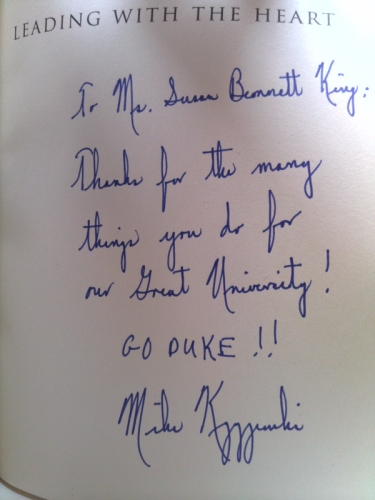 LEADING WITH THE HEART
To Ms. Susan Bennett King:
Thanks for the many
things you do for
our Great University!
GO DUKE!!
Mike Krzyzewski